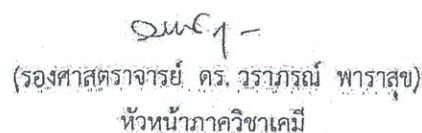 (รองศาสตราจารย์ ดร. วราภรณ์ พาราสุข)
หัวหน้าภาควิชาเคมี